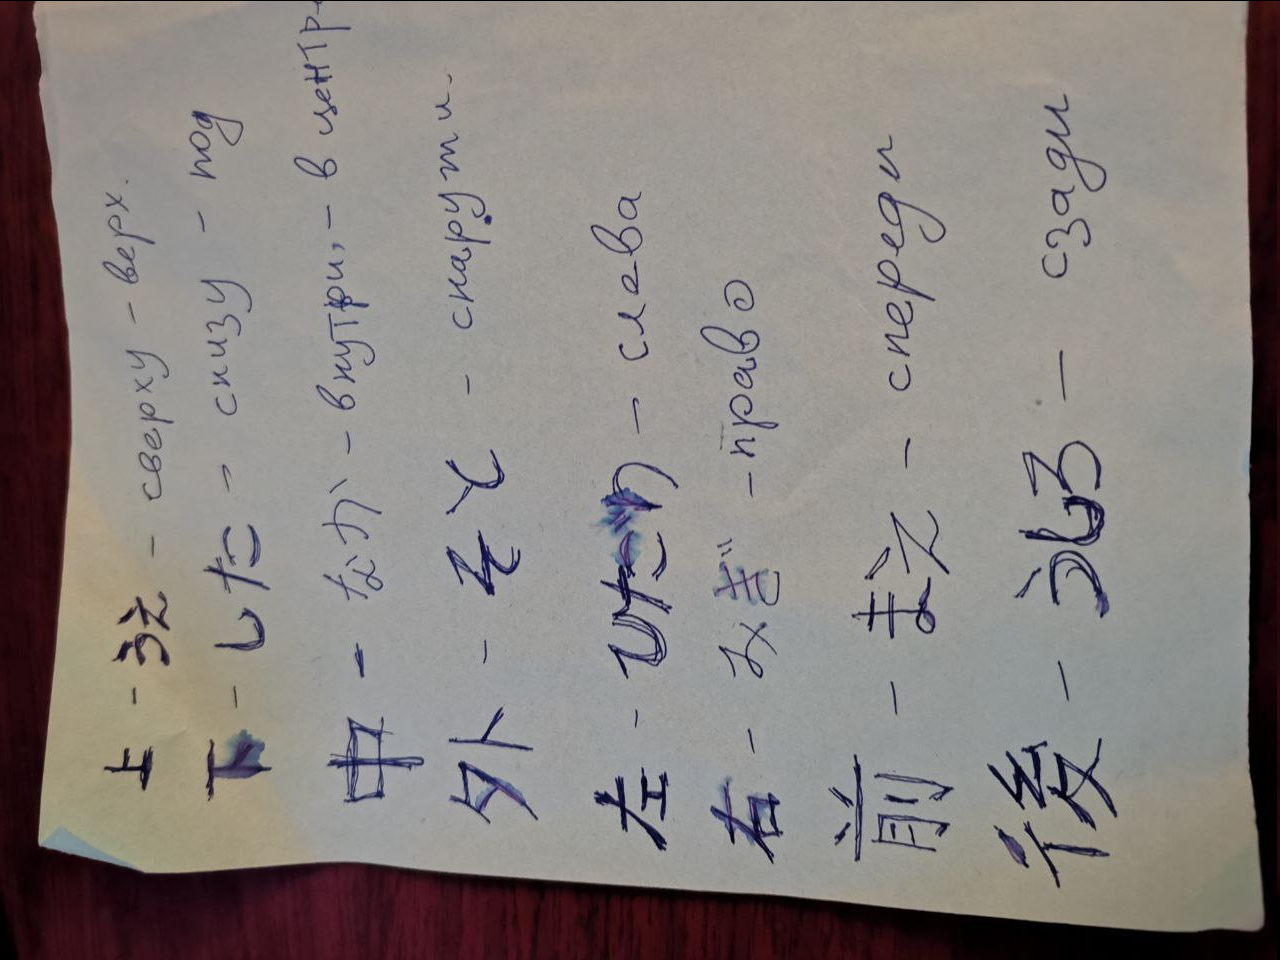 上 - うえ - сверху - верх.
下 - した - снизу - под
中 - なか - внутри, - в центр
外 - そと - снаружи.
左 - ひだり - слева
右 - みぎ - право
前 - まえ - спереди
後 - うしろ - сзади